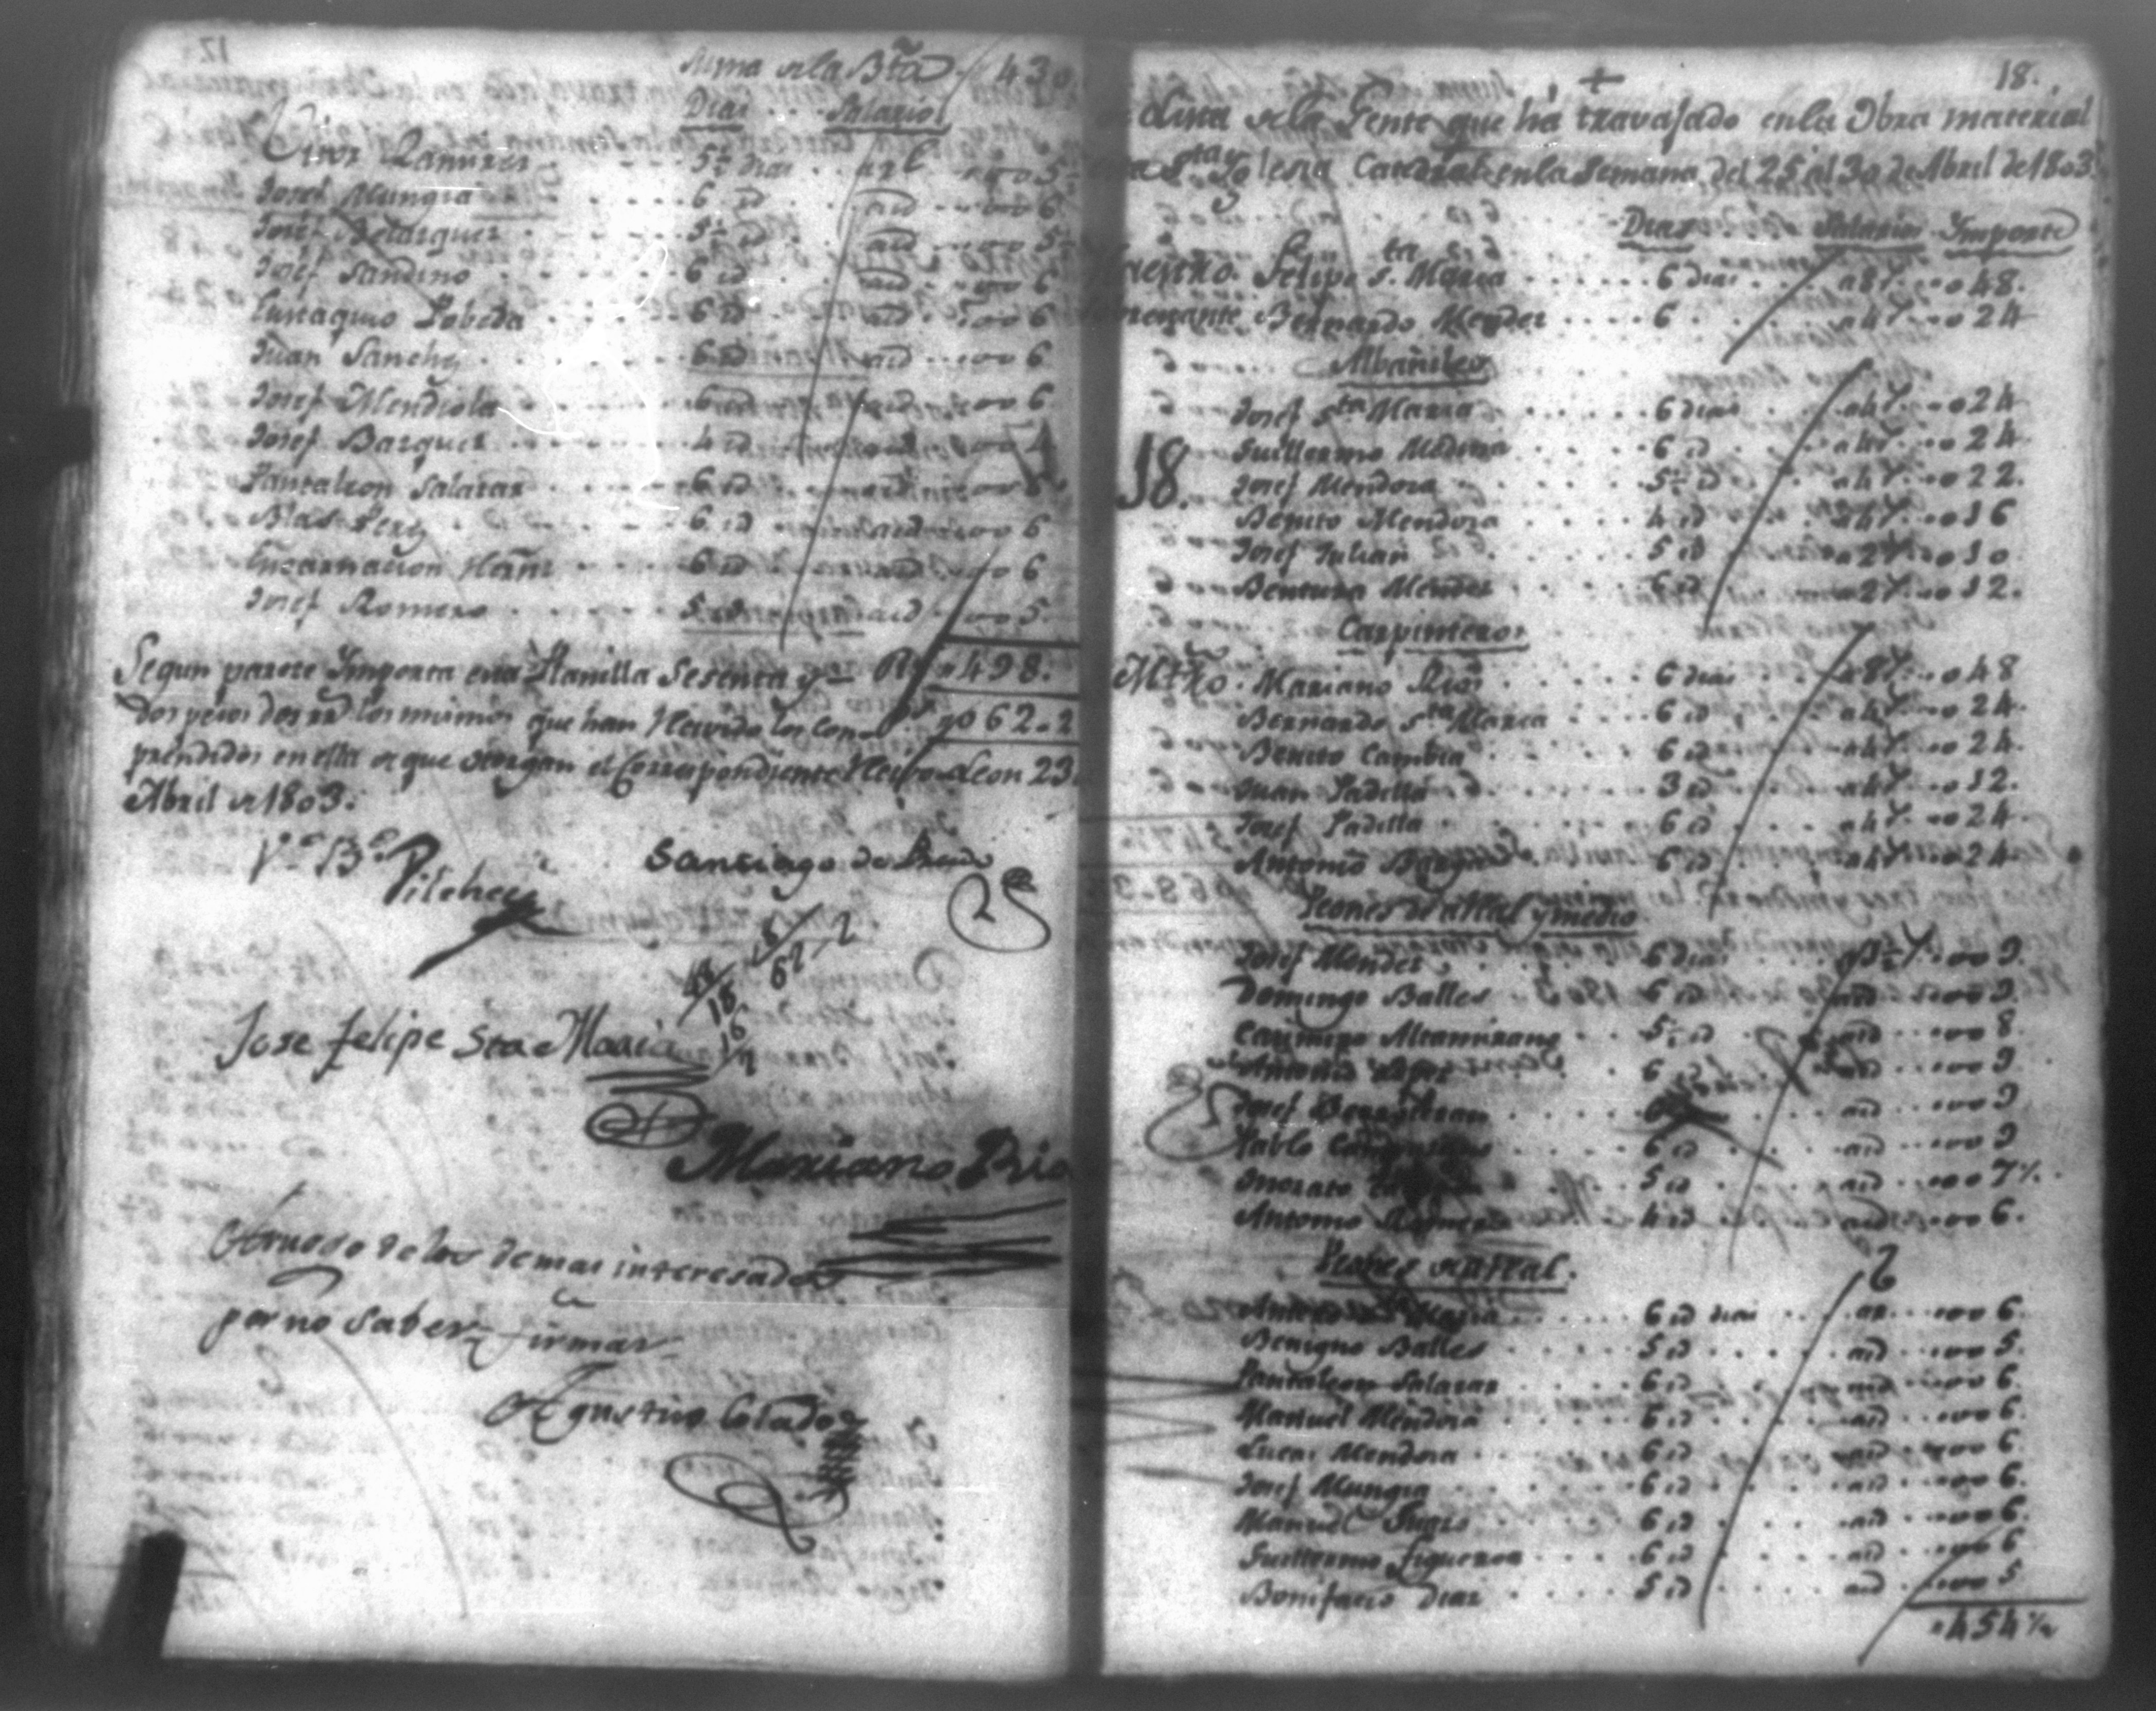 Suma de la Bta 430
Dias Salario
Ramirez 5½ dias a 1 5½
Josef Mungia 6 id aid 6
Josef Velazquez 5½ id aid 5½
Josef Sandino 6 id aid 6
Eustaquio Pobeda 6 id aid 6
Juan Sanchz 6 id aid 6
Josef Mendiola 6 id aid 6
Josef Bazquez 4 id aid 4
Pantaleon Salazar 6 id aid 6
Blas Perez 6 id aid 6
Encarnacion Hernz 6 id aid 6
Josef Romero 5 id aid 5
Segun parece Importa esta Planilla Sesenta y Rs 498.
Dos pesos dos rrs los mismos que han Recivido los Com- Ps 062-2
prendidos en ella de que otorgan el Correspondiente Recivo Leon 23
Abril de 1803.
Vo Bo
Santiago de
62-2
Jose felipe Sta Maria
Mariano Rio
A ruego de los demas interesados
por no saber firmar
Agustin Colador
18.
Lista de la Gente que há travajado en la Obra material
Sta Yglesia Catedral en la Semana del 25 al 30 de Abril de 1803.
Dias Salario Importe
Maestro. Felipe Sta. Maria 6 dias a 8 r 048.
Bernardo Mendez 6 a 4 r 024
Albañiles
Josef Sta Maria 6 dias a 4 r 024
Guillermo Medina 6 id a 4 r 024.
18. Josef Mendoza 5½ id a 4 r 022.
Benito Mendoza 4 id a 4 r 016
Josef Julian 5 id a 2 r 010
Bentura Mendez 6 id a 2 r 012.
Carpinteros
Mtro. Mariano Rios 6 dias a 8 r 048
Bernardo Sta Maria 6 id a 4 r 024.
Benito Cambia 6 id a 4 r 024.
Juan Padilla 3 id a 4 r 012.
Josef Padilla 6 id a 4 r 024.
Antonio 6 id a 4 r 024.
Peones de a Real y medio
Josef Mendez 6 dias a 1½ r 009.
Domingo Balles 6 id aid 009.
Casimiro Altamirano 5½ id aid 8
Antonio Lopez 6 id aid 009
Josef aid 009
Pablo 6 id aid 009
Onorato 5 id aid 007½.
Antonio Romero 4 id aid 006.
Peones de a Real.
Maria 6 id dias a 1 006.
Benigno Balles 5 id aid 005.
Pantaleon Salazar 6 id aid 006.
Manuel Mendoza 6 id aid 006.
Lucas Mendoza 6 id aid 006.
Josef Mungia 6 id aid 006.
Manuel 6 id aid 006.
Guillermo Figueroa 6 id aid 006
Bonifacio Diaz 5 id aid 005
454½